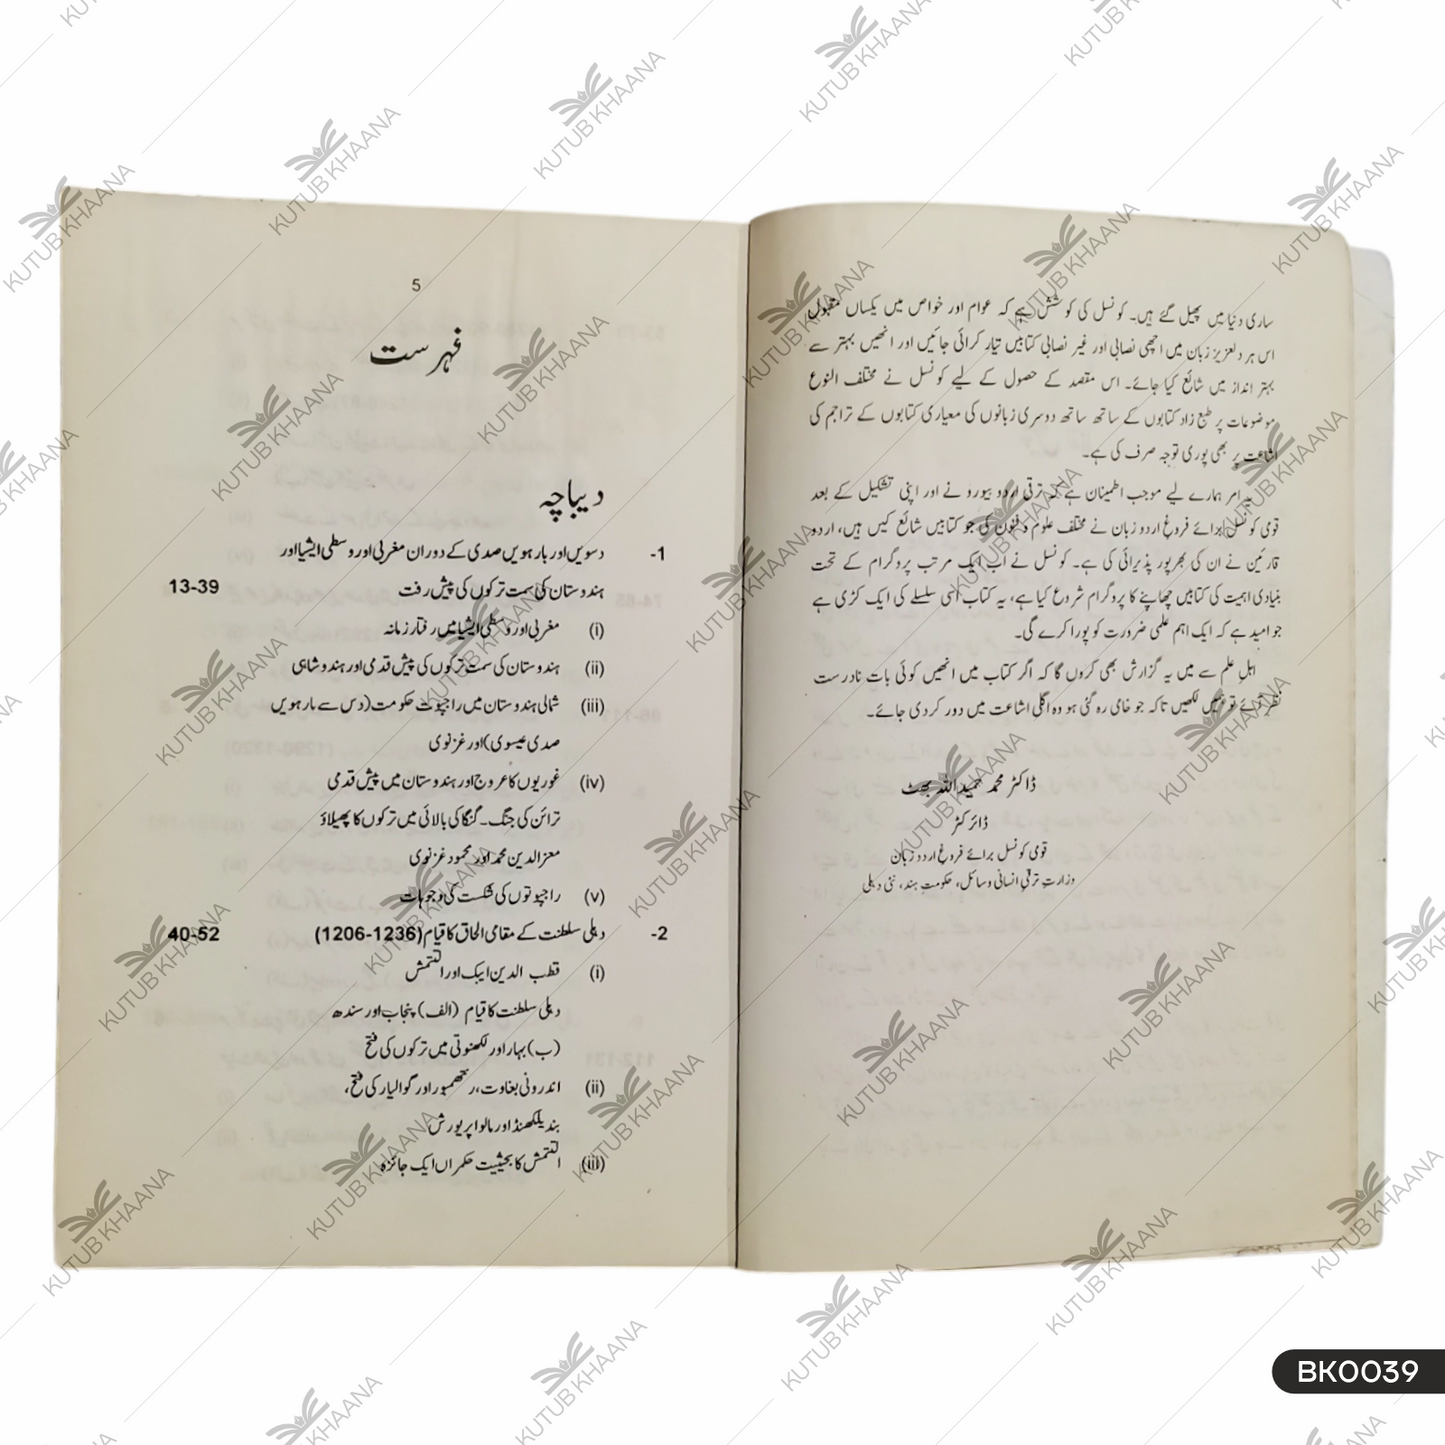 ساری دنیا میں پھیل گئے ہیں۔ کونسل کی کوشش ہے کہ عوام اور خواص میں یکساں مقبول
اس ہر دلعزیز زبان میں اچھی نصابی اور غیر نصابی کتابیں تیار کرائی جائیں اور انھیں بہتر سے
بہتر انداز میں شائع کیا جائے۔ اس مقصد کے حصول کے لیے کونسل نے مختلف النوع
موضوعات پر طبع زاد کتابوں کے ساتھ ساتھ دوسری زبانوں کی معیاری کتابوں کے تراجم کی
اشاعت پر بھی پوری توجہ صرف کی ہے۔
یہ امر ہمارے لیے موجب اطمینان ہے کہ ترقی اردو بیورو نے اور اپنی تشکیل کے بعد
قومی کونسل برائے فروغ اردو زبان نے مختلف علوم و فنون کی جو کتابیں شائع کیں ہیں، اردو
قارئین نے ان کی بھرپور پذیرائی کی ہے۔ کونسل نے اب ایک مرتب پروگرام کے تحت
بنیادی اہمیت کی کتابیں چھاپنے کا پروگرام شروع کیا ہے، یہ کتاب اسی سلسلے کی ایک کڑی ہے
جو امید ہے کہ ایک اہم علمی ضرورت کو پورا کرے گی۔
اہل علم سے میں یہ گزارش بھی کروں گا کہ اگر کتاب میں انھیں کوئی بات نادرست
نظر آئے تو ہمیں لکھیں تاکہ جو خامی رہ گئی ہو وہ اگلی اشاعت میں دور کردی جائے۔
ڈاکٹر محمد حمید اللہ بھٹ
ڈائرکٹر
قومی کونسل برائے فروغ اردو زبان
وزارت ترقی انسانی وسائل، حکومت ہند، نئی دہلی
5
فہرست
دیباچہ
1- دسویں اور بارہویں صدی کے دوران مغربی اور وسطی ایشیا اور
ہندوستان کی سمت ترکوں کی پیش رفت 13-39
(i) مغربی اور وسطی ایشیا میں رفتار زمانہ
(ii) ہندوستان کی سمت ترکوں کی پیش قدمی اور ہندو شاہی
(iii) شمالی ہندوستان میں راجپوت حکومت (دس سے بارہویں
صدی عیسوی) اور غزنوی
(iv) غوریوں کا عروج اور ہندوستان میں پیش قدمی
ترائن کی جنگ۔ گنگا کی بالائی میں ترکوں کا پھیلاؤ
معز الدین محمد اور محمود غزنوی
(v) راجپوتوں کی شکست کی وجوہات
2- دہلی سلطنت کے مقامی الحاق کا قیام (1206-1236) 40-52
(i) قطب الدین ایبک اور التمش
دہلی سلطنت کا قیام (الف) پنجاب اور سندھ
(ب) بہار اور لکھنوتی میں ترکوں کی فتح
(ii) اندرونی بغاوت، رتھمبور اور گوالیار کی فتح،
بندیلکھنڈ اور مالوا پر یورش
(iii) التمش کا بحیثیت حکمراں ایک جائزہ
KUTUB KHAANA
BK0039